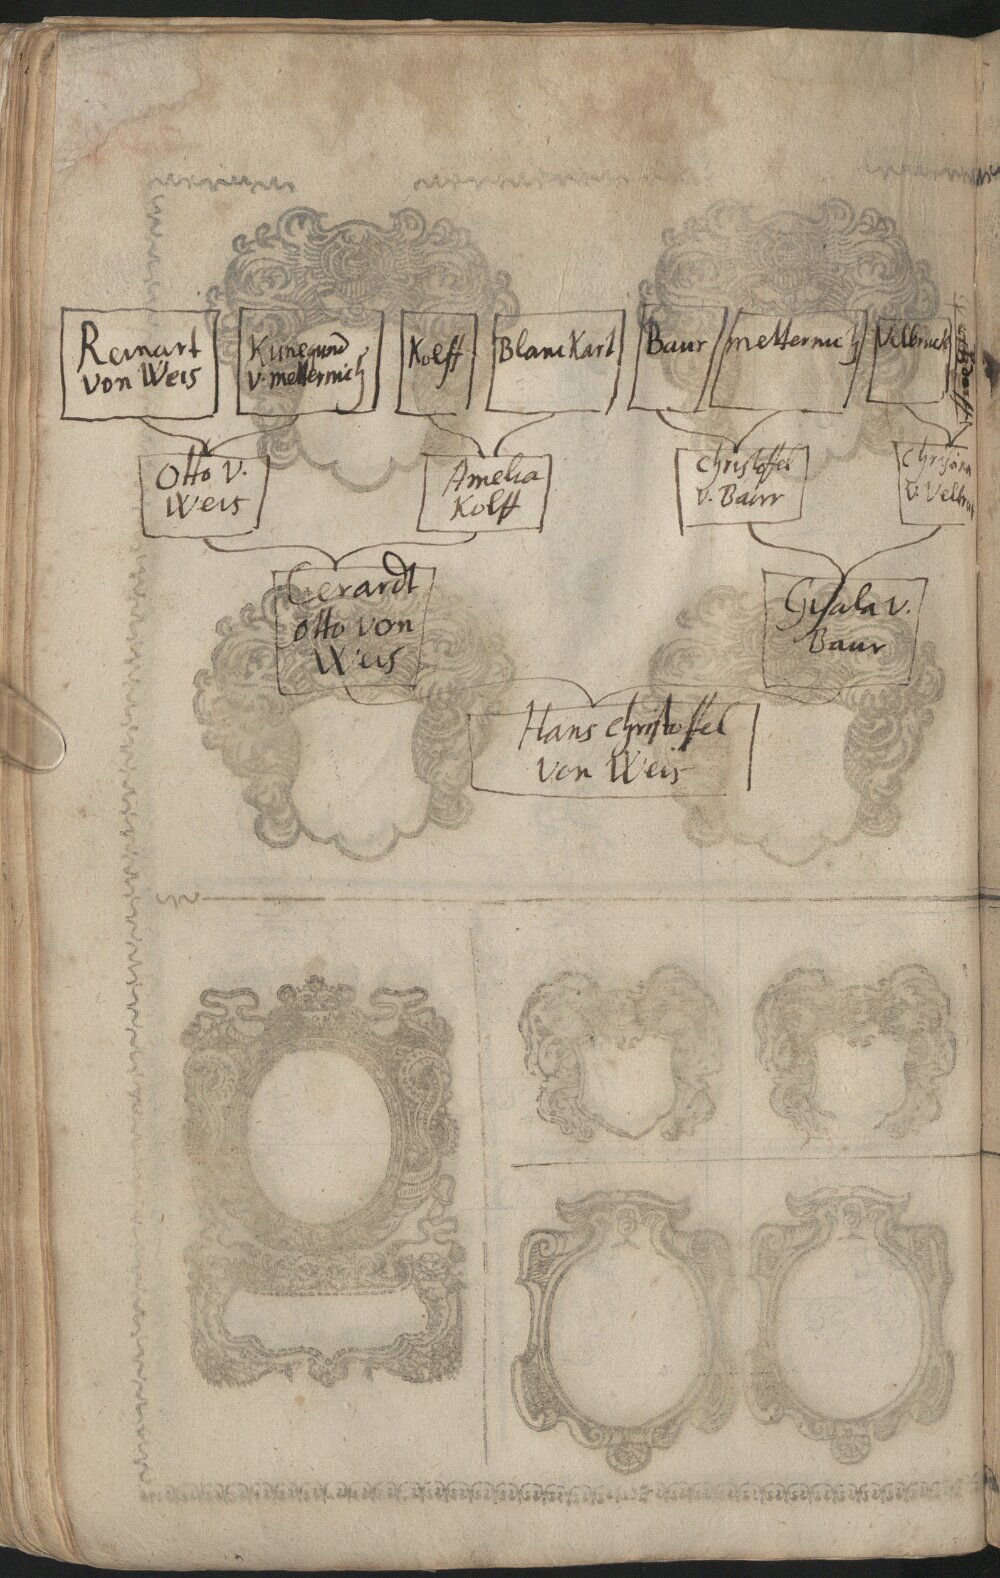 Reinart
von Weis
Kunegund
v. metternich
Kolff
Blanckart
Baur
metternich
Velbruck
Otto v.
Weis
Amelia
Kolff
Christoffel
v. Baur
v. Velbruck
Gerardt
otto von
Weis
Gysala v.
Baur
Hans Christoffel
von Weis